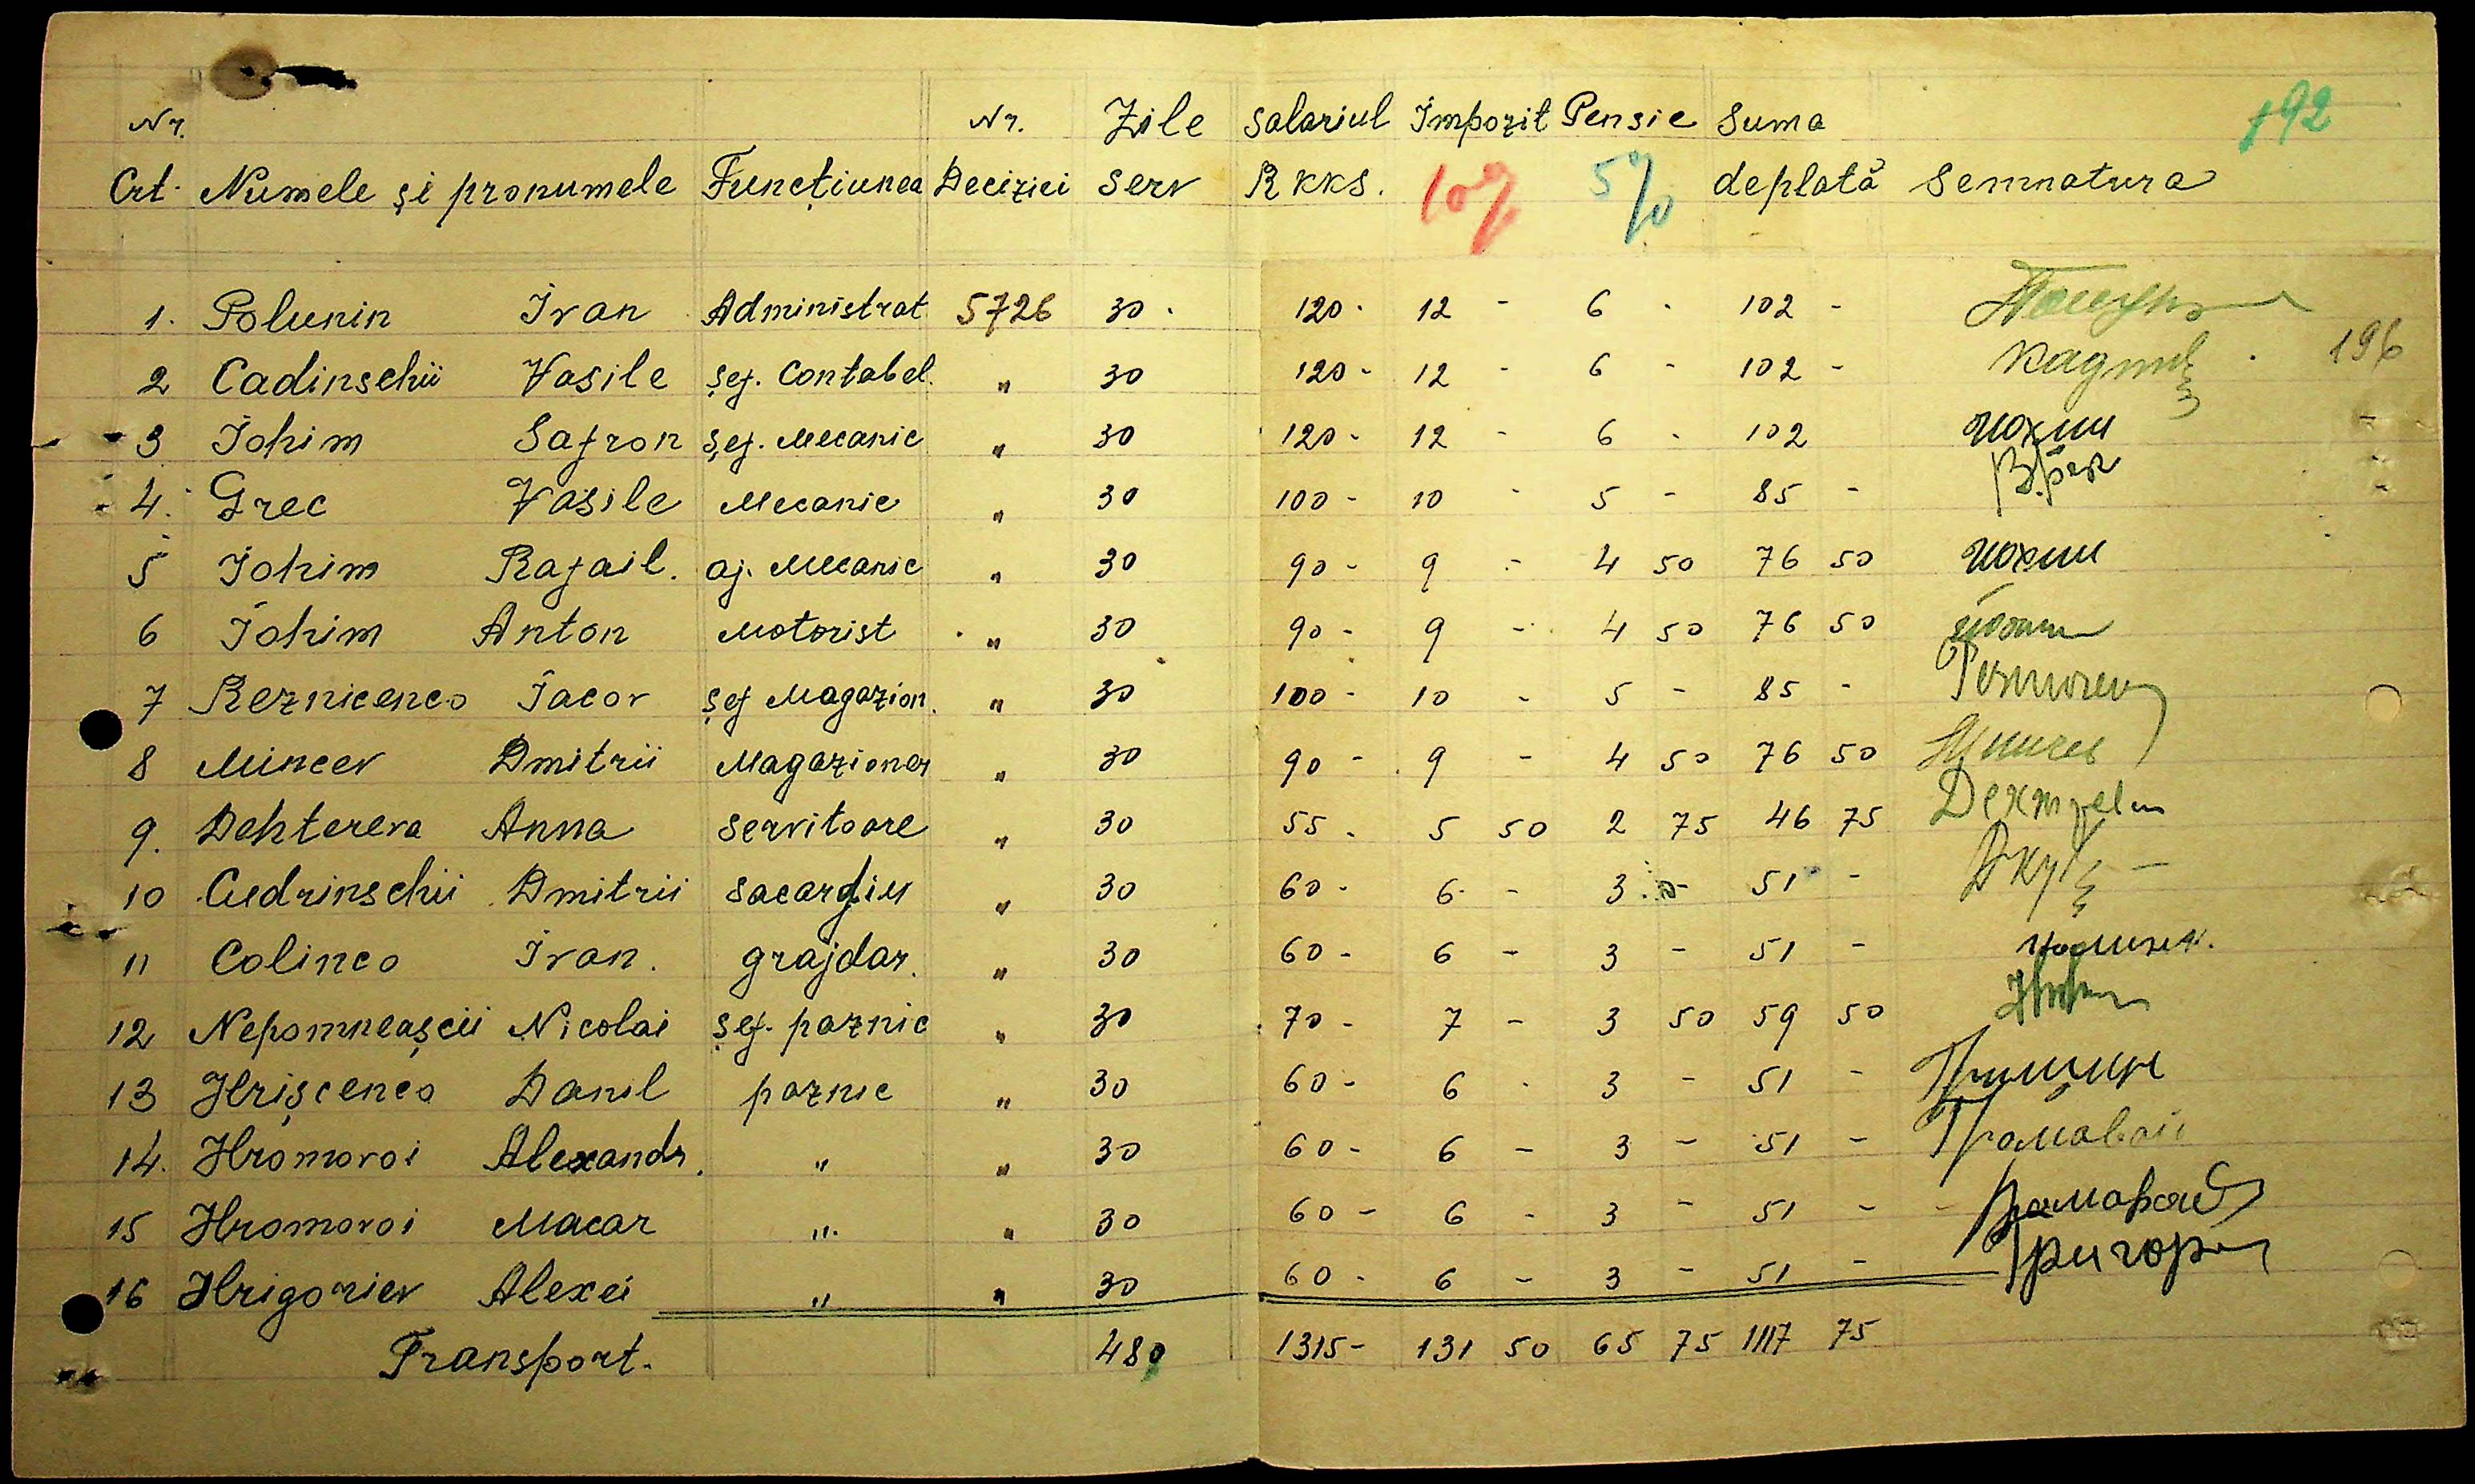 192
Nr. Nr. Zile Salariul Impozit Pensie Suma
Crt. Numele și pronumele Funcțiunea Deciziei Serv RKKS. 10% 5% deplată Semnatura
1. Polunin Ivan Administrat 5726 30 120 - 12 - 6 - 102 -
196
2 Cadinschii Vasile șef. Contabel. " 30 120 - 12 - 6 - 102 -
3 Iohim Safron șef. Mecanic " 30 120 - 12 - 6 - 102 Иохим
4. Grec Vasile Mecanic " 30 100 - 10 - 5 - 85 -
5 Iohim Rafail. aj. Mecanic " 30 90 - 9 - 4 50 76 50 Иохим
6 Iohim Anton Motorist " 30 90 - 9 - 4 50 76 50
7 Reznicenco Iacov șef Magazion. " 30 100 - 10 - 5 - 85 -
8 Mincev Dmitrii Magazioner " 30 90 - 9 - 4 50 76 50
9. Dehtereva Anna Servitoare " 30 55 - 5 50 2 75 46 75
10 Cudrinschii Dmitrii sacargiu " 30 60 - 6 - 3 - 51 -
11 Colinco Ivan. grajdar. " 30 60 - 6 - 3 - 51 -
12 Nepomneașcii Nicolai șef. paznic " 30 70 - 7 - 3 50 59 50
13 Hrișcenco Danil paznic " 30 60 - 6 - 3 - 51 -
14. Hromovoi Alexandr. " " 30 60 - 6 - 3 - 51 -
15 Hromovoi Macar " " 30 60 - 6 - 3 - 51 -
16 Hrigoriev Alexei " " 30 60 - 6 - 3 - 51 -
Transport. 480 1315 - 131 50 65 75 1117 75